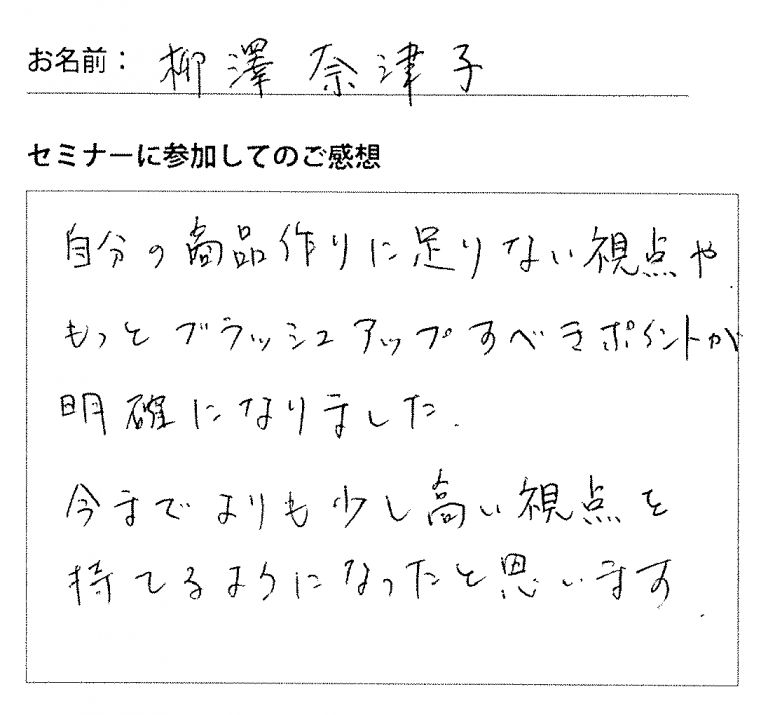 お名前： 柳澤 奈津子
セミナーに参加してのご感想
自分の商品作りに足りない視点や
もっとブラッシュアップすべきポイントが
明確になりました.
今までよりも少し高い視点を
持てるようになったと思います.